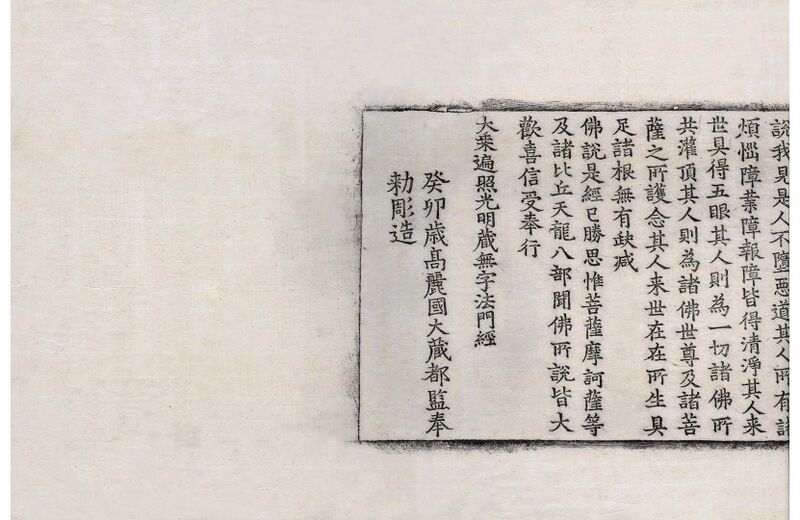 說我見是人不墮惡道其人所有諸
煩惱障業障報障皆得清淨其人来
世具得五眼其人則為一切諸佛所
共灌頂其人則為諸佛世尊及諸菩
薩之所護念其人来世在在所生具
足諸根無有缺减
佛說是經已勝思惟菩薩摩訶薩等
及諸比丘天龍八部聞佛所說皆大
歡喜信受奉行
大乘遍照光明藏無字法門經
癸卯歲高麗國大藏都監奉
勅彫造